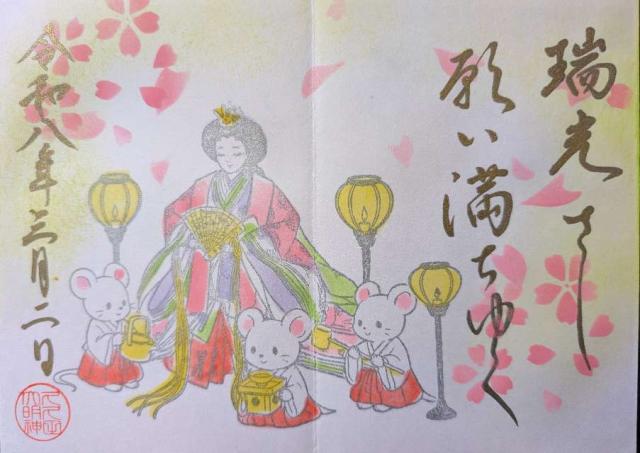 瑞光さし
願い満ちゆく
令和八年三月二日